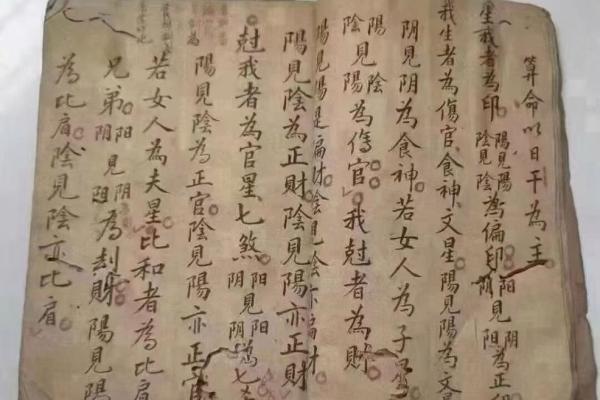 算命以日干為主
星我者為印陽見陽陰見陰為偏印阳見阴阴見阳為正
我生者為傷官食神文星陽見陽為文
阴見阴為食神若女人為子星
陽見陰陰見陽為傷官我尅者為財
陽見陽是扁財陰見陰亦扁財
陽見陰為正財陰見陽亦正財
尅我者為官星七煞阳見阳阴見阴為七
陽見陰為正官陰見陽亦正官
若女人為夫星比和者為比肩
兄弟阳見阴阴見阳為刦財陽見陽
為比肩陰見陰亦比肩